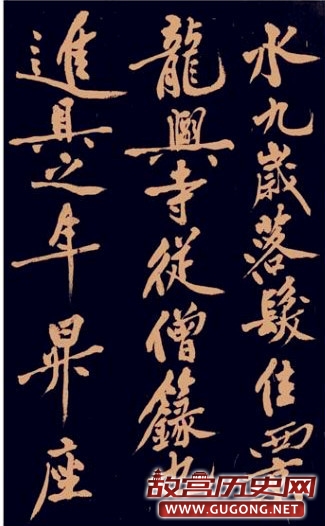 水九歲落髮住
龍興寺從僧籙
進具之年昇座
故宫历史网
WWW.GUGONG.NET